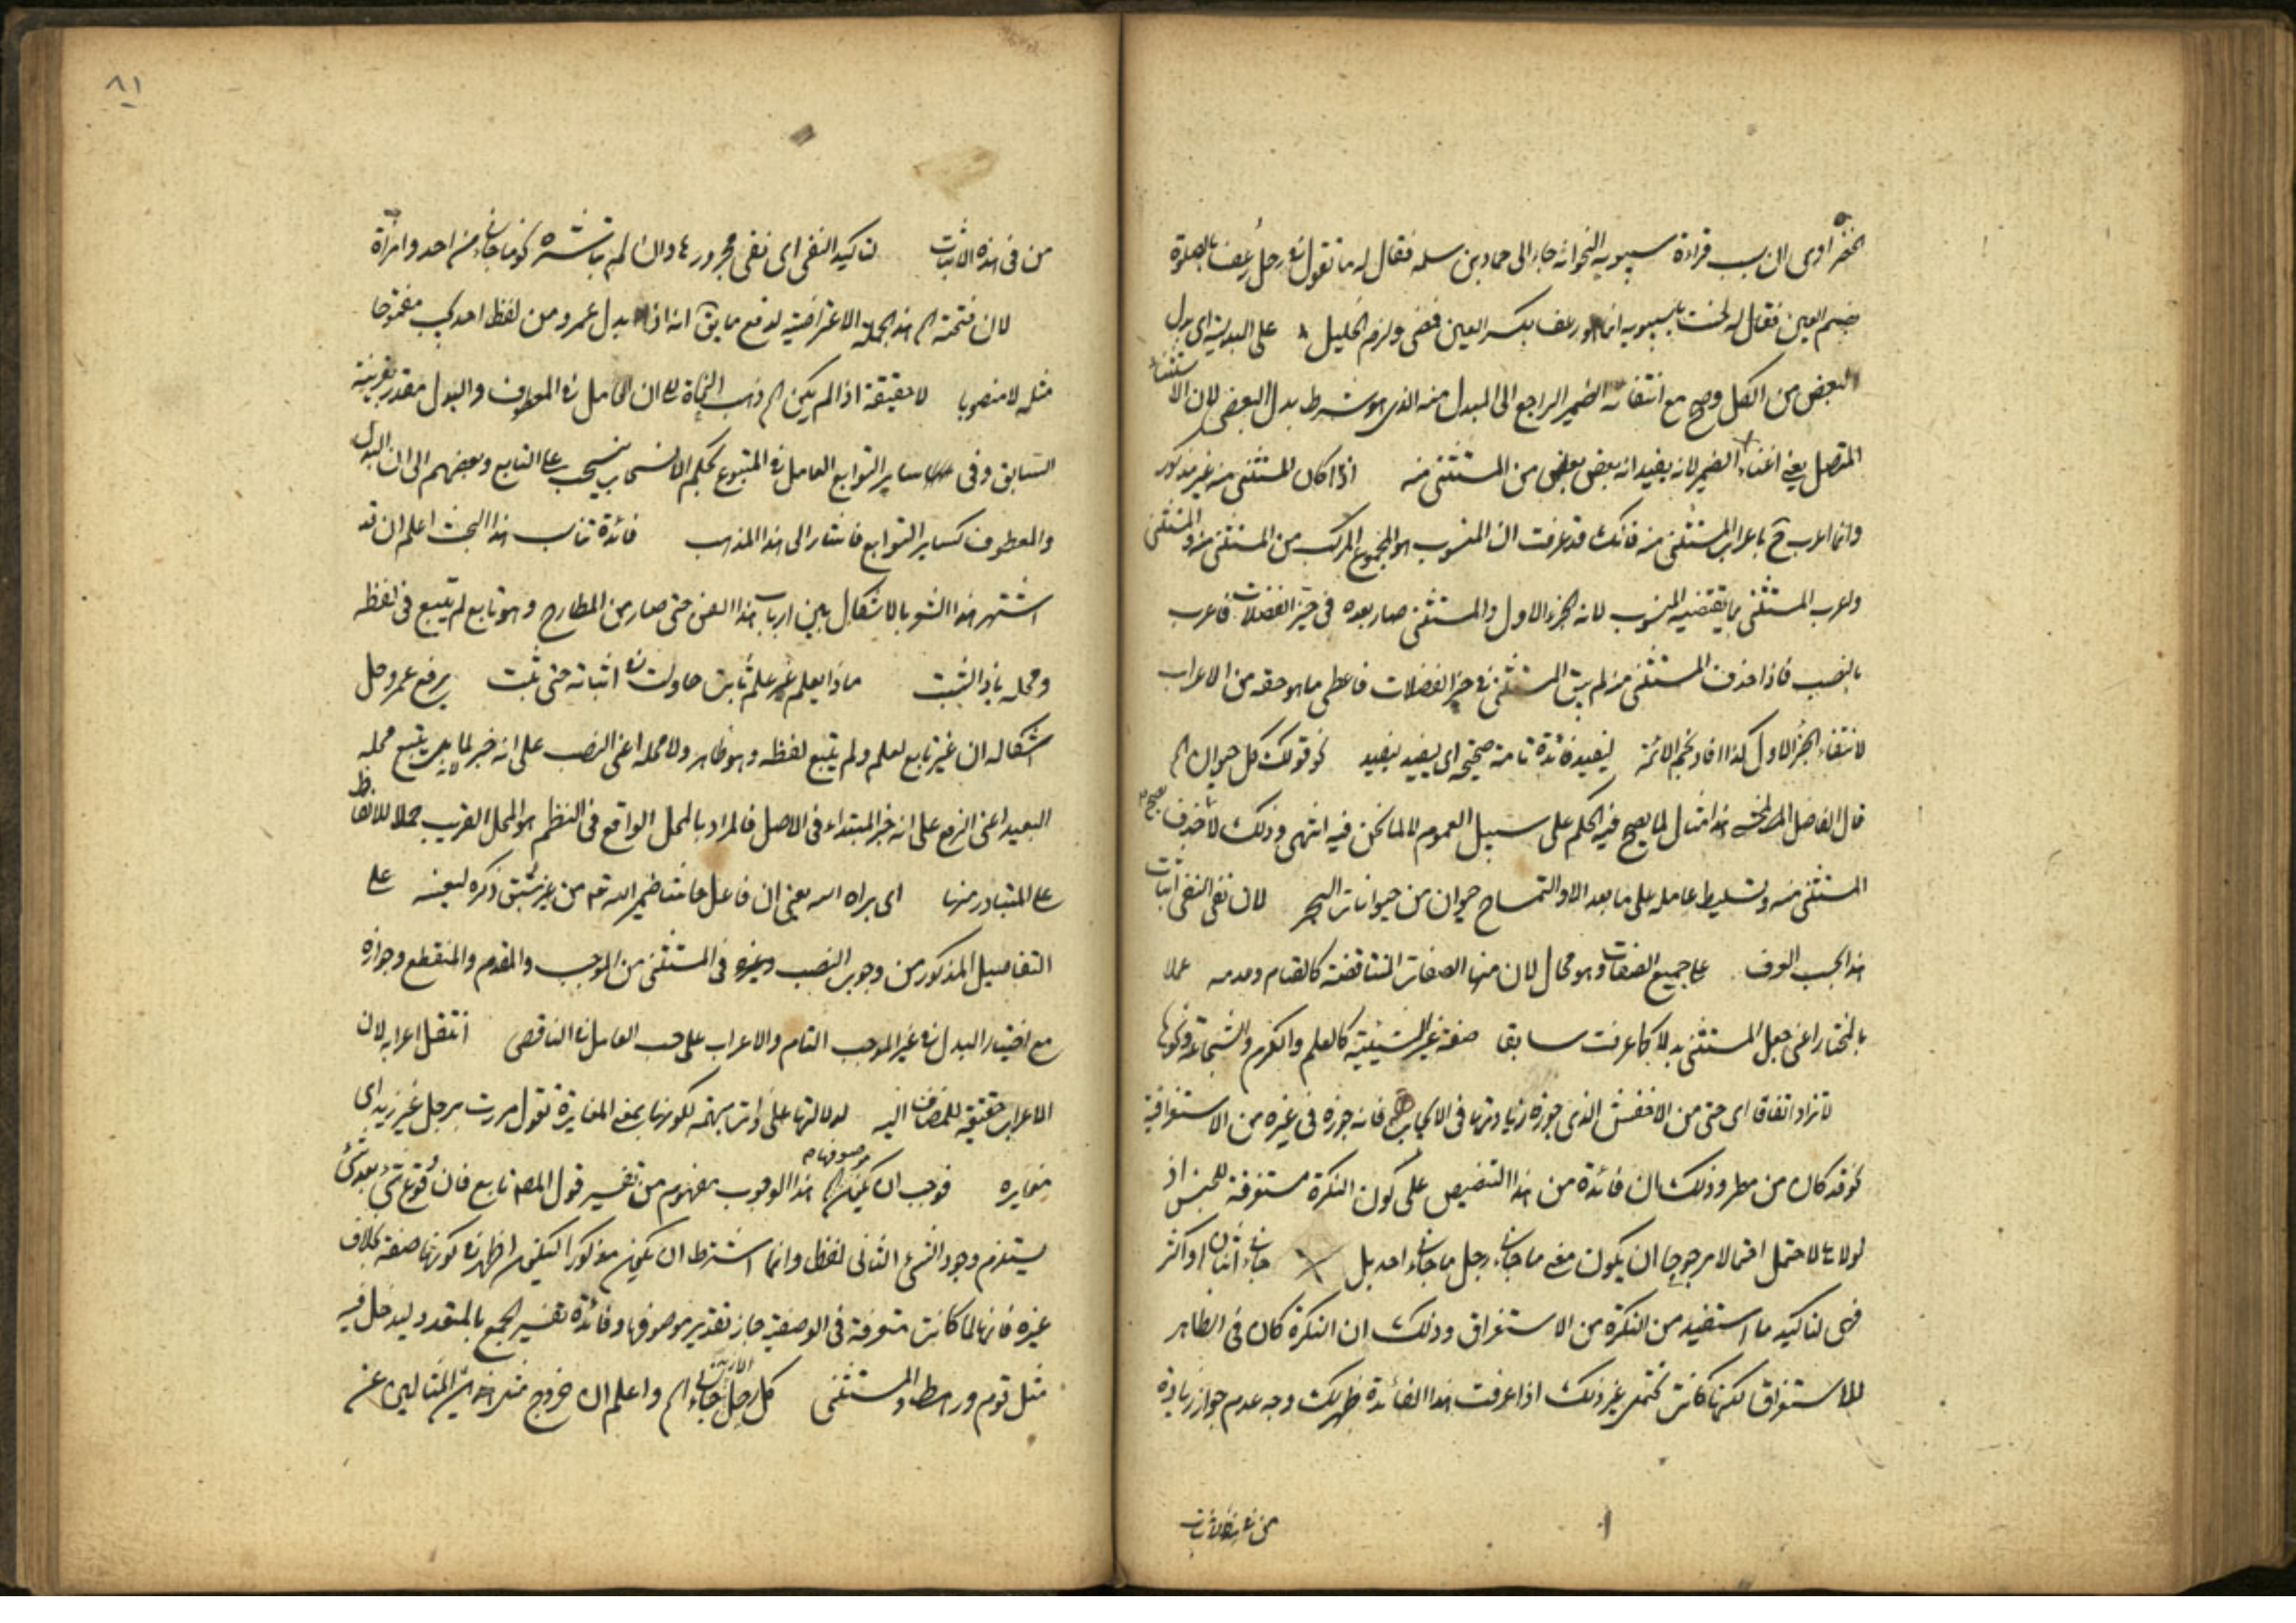 الخضراوى ان سبب قراءة سيبويه النحو انه جاء الى حماد بن سلمه فقال له ما تقول فى رجل رعف بالصلوة
بضم العين فقال له لحنت يا سيبويه انما هو رعف بكسر العين فمضى ولزم الخليل على البدلية اى بدل
البعض من الكل وصح مع انتفائه الضمير الراجع الى المبدل منه الذى هو شرط بدل البعض لان الاستثناء
المتصل يغنى اغناء الضمير لانه يفيد انه بعض بعض من المستثنى منه اذا كان المستثنى منه غير مذكور
وانما اعرب ح باعراب المستثنى منه فانك قد عرفت ان المنسوب هو المجموع المركب من المستثنى منه والمستثنى
ولعرب المستثنى بما يقتضيه المنسوب لانه الجزء الاول والمستثنى صار بعده فى حيز الفضلات فاعرب
بالنصب فاذا حذف المستثنى منه لم يبق المستثنى فى حيز الفضلات فاعطى ما هو حقه من الاعراب
لانتفاء الجزء الاول كذا افاد نجم الائمة ليفيد فائدة تامة صحيحة اى يفيد يفيد نحو قولك كل حيوان الخ
قال الفاضل هذا مثال لما يصح فيه الحكم على سبيل العموم لا لما نحن فيه انتهى وذلك لا حذف يصح
المستثنى منه وتسليط عامله على ما بعد الا والتمساح حيوان من حيوانات البحر لان نفى النفى اثبات
هذا بحسب العرف على جميع الصفات وهو محال لان منها الصفات المتناقضة كالقيام وعدمه عملا
بالمختار اعنى جعل المستثنى بدلا كما عرفت سابقا صفة غير الشيئية كالعلم والكرم والشجاعة ونحوها
لا تزاد اتفاقا اى حتى من الاخفش الذى جوز زيادتها فى الايجاب فانه جوزه فى غيره من الاستغراقية
نحو قد كان من مطر وذلك ان فائدة من هذا التنصيص على كون النكرة مستغرقة للجنس اذ
لولاها لاحتمل احتمالا مرجوحا ان يكون معنى ما جاءنى رجل ما جاءنى احد بل جاءنى اثنان او اكثر
فهى لتاكيد ما استفيد من النكرة من الاستغراق وذلك ان النكرة كان فى الظاهر
للاستغراق لكنها كانت تحتمل غير ذلك اذا عرفت هذا الفائدة ظهر لك وجه عدم جواز زيادة
من فى هذه الاثبات
٨١
من فى هذه الاثبات لتاكيد النفى اى نفى مجرورها وان لم تباشره نحو ما جاءنى من احد وامرأة
لان فتحته الخ هذه الجملة الاعتراضية لدفع ما يق انه اذا بدل عمرو من لفظ احد يجب مفتوحا
مثله لا منصوبا لا حقيقة اذا لم يكن الخ ذهب النحاة على ان العامل فى المعطوف والبدل مقدر بقرينة
السابق وفى ساير التوابع العامل فى المتبوع بحكم الانسحاب ينسحب على التابع وبعضهم الى ان البدل
والمعطوف كساير التوابع فاشار الى هذا المذهب فائدة تناسب هذا البحث اعلم ان قد
اشتهر هذا الشو بالاشكال بين ارباب هذا الفن حتى صار من المطارح وهو تابع لم يتبع فى لفظه
ومحله ياذا الثبت ماذا يعلم غير علم ثابت حاولت فى اثباته حتى ثبت يرفع عمرو حل
اشكاله ان غير تابع لعلم ولم يتبع لفظه وهو ظاهر ولا محله اعنى النصب على انه خبر لما بل يتبع محله
البعيد اعنى الرفع على انه خبر المبتداء فى الاصل فالمراد بالمحل الواقع فى النظم هو المحل القريب حملا للالفاظ
على المتبادر منها اى براه اسه يعنى ان فاعل حاشا ضمير الله تع من غير سبق ذكره لتعينه على
التفاصيل المذكور من وجوب النصب وغيره فى المستثنى من الموجب والمقدم والمنقطع وجوازه
مع اختيار البدل فى غير الموجب التام والاعراب على حسب العامل فى الناقص انتقل اعرابه لان
الاعراب حقيقة للمضاف اليه لدلالتها على ذات مبهمة لكونها بمعنى المغايرة تقول مررت برجل غير زيد اى
مغايره فوجب ان يكون موصوفها الخ هذا الوجوب مفهوم من تفسير قول المصه تابع فان وقوع شئ بعد شئ
يستلزم وجود الشئ الثانى لفظا وانما اشترط ان يكون مذكورا ليكون اظهر فى كونها صفة بخلاف
غيره فانها لما كانت متعرفة فى الوصفية جاز تقدير موصوفها وفائدة تفسير الجمع بالمتعدد ليدخل فيه
مثل قوم ورهط والمستثنى كل رجل جاءنى الخ واعلم ان خروج مثل هذين المثالين عن